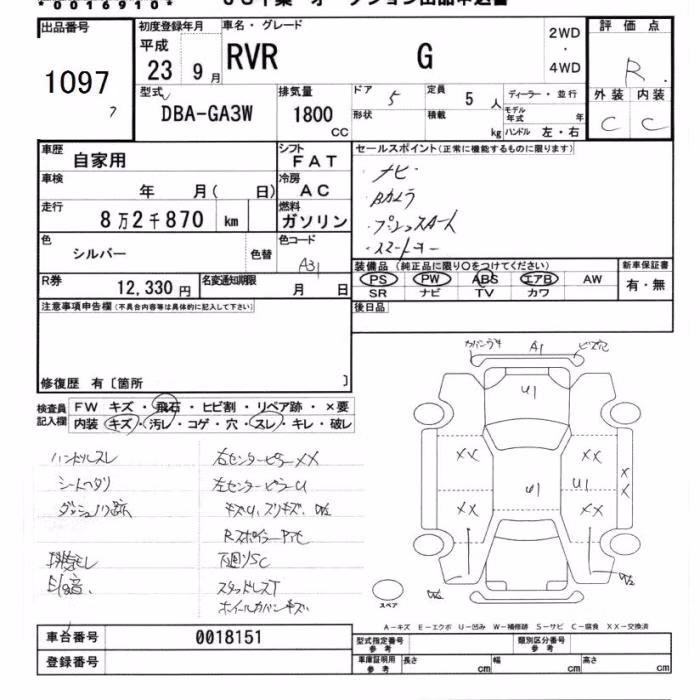 *0016910*
出品番号 初度登録年月 車名・グレード 2WD・4WD 評価点
1097 平成 23 9月 RVR G R.
7
型式 DBA-GA3W 排気量 1800 CC ドア 5 定員 5 人 ディーラー・並行 外装 内装
形状 積載 kg モデル年式 年 ハンドル 左・右 C C
車歴 自家用 シフト FAT セールスポイント(正常に機能するものに限ります)
車検 年 月( 日) 冷房 AC ・ナビ・
走行 8万2千870 km 燃料 ガソリン ・Bカメラ
・プッシュスタート
・スマートキー
色 シルバー 色替 色コード A31
装備品(純正品に限り〇をつけてください) 新車保証書
PS PW ABS エアB AW 有・無
SR ナビ TV カワ
R券 12,330円 名変通知期限 月 日
後日品
注意事項申告欄(不具合内容等は具体的に記入して下さい)
修復歴 有〔箇所 〕
検査員記入欄 FW キズ・飛石・ヒビ割・リペア跡・×要
内装 キズ・汚レ・コゲ・穴・スレ・キレ・破レ
ハンドルスレ
シートヘタリ
右センターピラーXX
左センターピラーU
キズU、スリキズ、
下廻りSC
スタッドレスT
ホイールカバーキズ
A1
U1
XX XX
U1 U1
XX
XX XX
スペア
A-キズ E-エクボ U-凹み W-補修跡 S-サビ C-腐食 XX-交換済
車台番号 0018151
登録番号
型式指定番号 参考 類別区分番号 参考
車庫証明用 参考 長さ cm 幅 cm 高さ cm